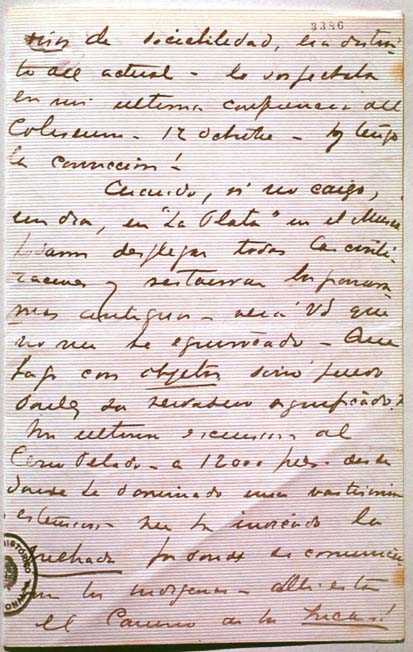 3386
de sociabilidad, era distin-
to del actual - lo sospechaba
en mi ultima conferencia del
Coliseum - 12 octubre - hoy tengo
la conviccion!
Cuando, si no caigo,
un dia, en "La Plata" en el Museo
todas las civili-
zaciones y restaurar los panora-
mas antiguos - verá Vd que
no me he equivocado - Que
hago con objetos sino puedo
darles su verdadero significado?
Mi ultima escursion al
Cerro Pelado - a 12000 pies - desde
donde he dominado una vastisima
estension - me ha indicado la
por donde se comunica
los indigenas - alli está
el Camino de los Incas!